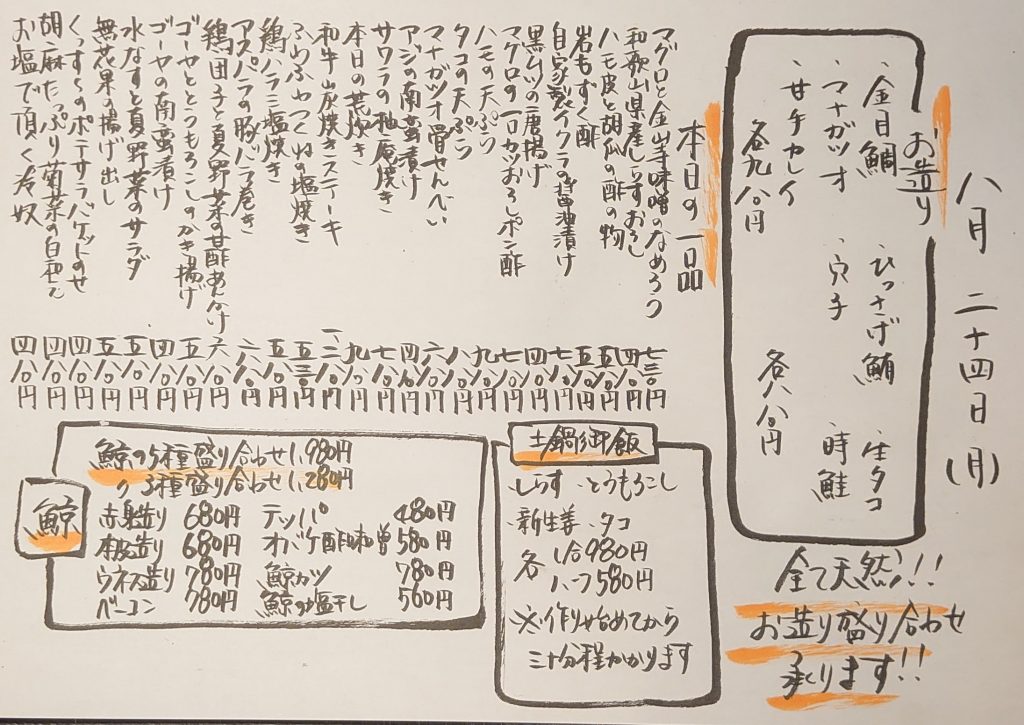 八月二十四日(月)
お造り
、金目鯛 、ひっさげ鮪 、生タコ
、マナガツオ 、穴子 、時鮭
、甘手カレイ
各九八〇円 各八八〇円
全て天然!!
お造り盛り合わせ
承ります!!
本日の一品
マグロと金山寺味噌のなめろう 七三〇円
和歌山県産しらすおろし 四八〇円
ハモ皮と胡瓜の酢の物 五八〇円
岩もずく酢 五八〇円
自家製イクラの醤油漬け 七八〇円
黒ムツの唐揚げ
マグロの一口カツおろしポン酢
ハモの天ぷら
タコの天ぷら
マナガツオ骨せんべい
アジの南蛮漬け
サワラの柚庵焼き
本日の荒炊き
和牛山炭焼きステーキ
ふわふわつくねの塩焼き
鶏ハラミ塩焼き
アスパラの豚バラ巻き
鶏団子と夏野菜の甘酢あんかけ
ゴーヤととうもろこしのかき揚げ
ゴーヤの南蛮漬け
水なすと夏野菜のサラダ
無花果の揚げ出し
くんすものポテサラバケットのせ
胡麻たっぷり菊菜の白和え 四八〇円
お塩で頂く冷奴 四八〇円
土鍋御飯
、しらす 、とうもろこし
、新生姜 、タコ
各 一合980円
ハーフ580円
※作り始めてから
三十分程かかります
鯨
鯨の5種盛り合わせ 1,980円
〃 3種盛り合わせ 1,280円
赤身造り 680円 テッパ 480円
本皮造り 680円 オバケ酢味噌 580円
ウネス造り 780円 鯨カツ 780円
ベーコン 780円 鯨の塩干し 560円